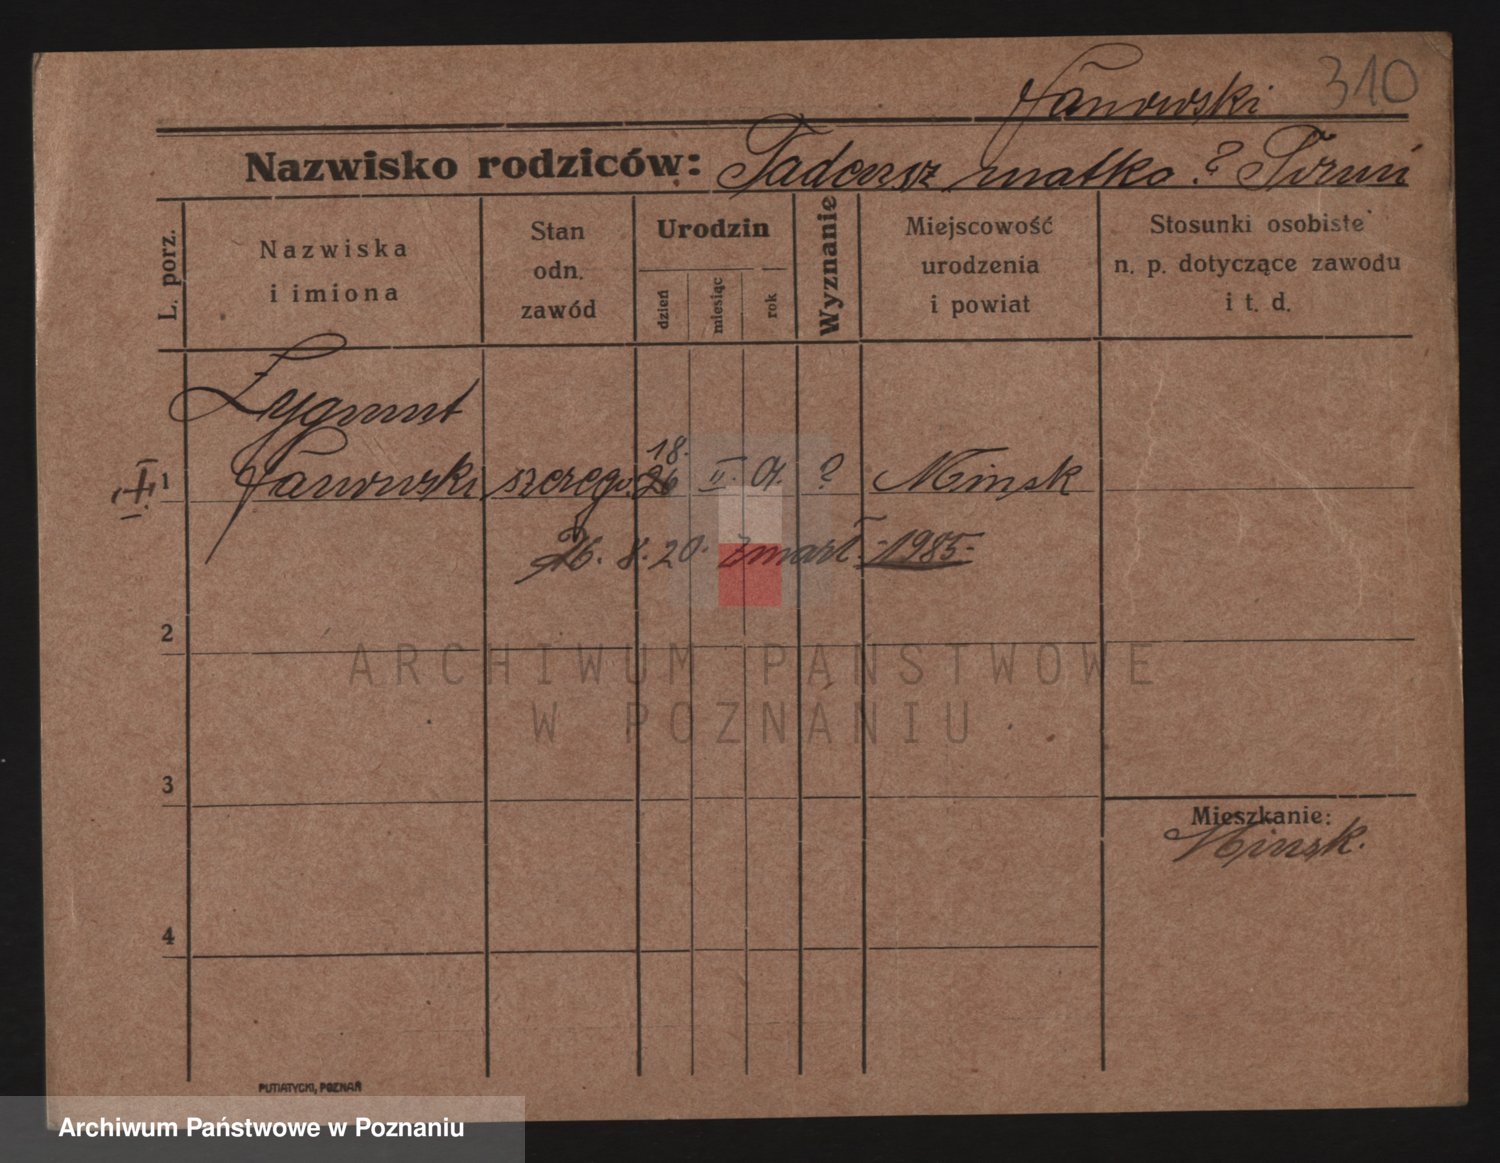 Janowski 310
Nazwisko rodziców: Tadeusz matka ? Toruń
L. porz.
Nazwiska
i imiona
Stan
odn.
zawód
Urodzin
dzień
miesiąc
rok
Wyznanie
Miejscowość
urodzenia
i powiat
Stosunki osobiste
n. p. dotyczące zawodu
i t. d.
Zygmunt
18.
1 Janowski szereg. 26 II. 01. ? Minsk
26. 8. 20. zmarł -1985-
2
3
Mieszkanie:
Minsk.
4
PUTIATYCKI, POZNAŃ
ARCHIWUM PAŃSTWOWE
W POZNANIU
Archiwum Państwowe w Poznaniu